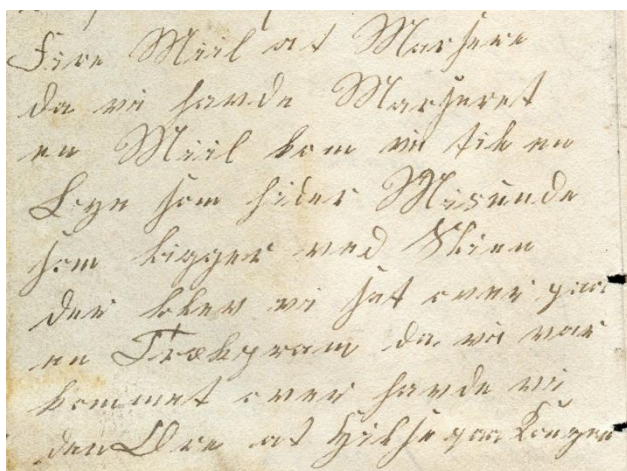 Fire Miil at Marsere
da vi havde Marseret
en Miil kom vi til en
Bye som hider Misunde
som ligger ved Slien
der blev vi sat over paa
en Trækpram da vi var
kommet over havde vi
den Ære at Hilse paa Kongen